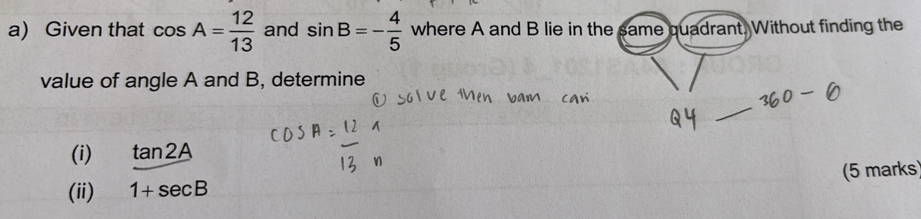 a) Given that cos A = 12/13 and sin B = -4/5 where A and B lie in the same quadrant. Without finding the
value of angle A and B, determine
① solve then bam cari
Q4 — 360 - θ
cos A = 12 a
13 h
(i) tan 2A
(ii) 1 + sec B
(5 marks)